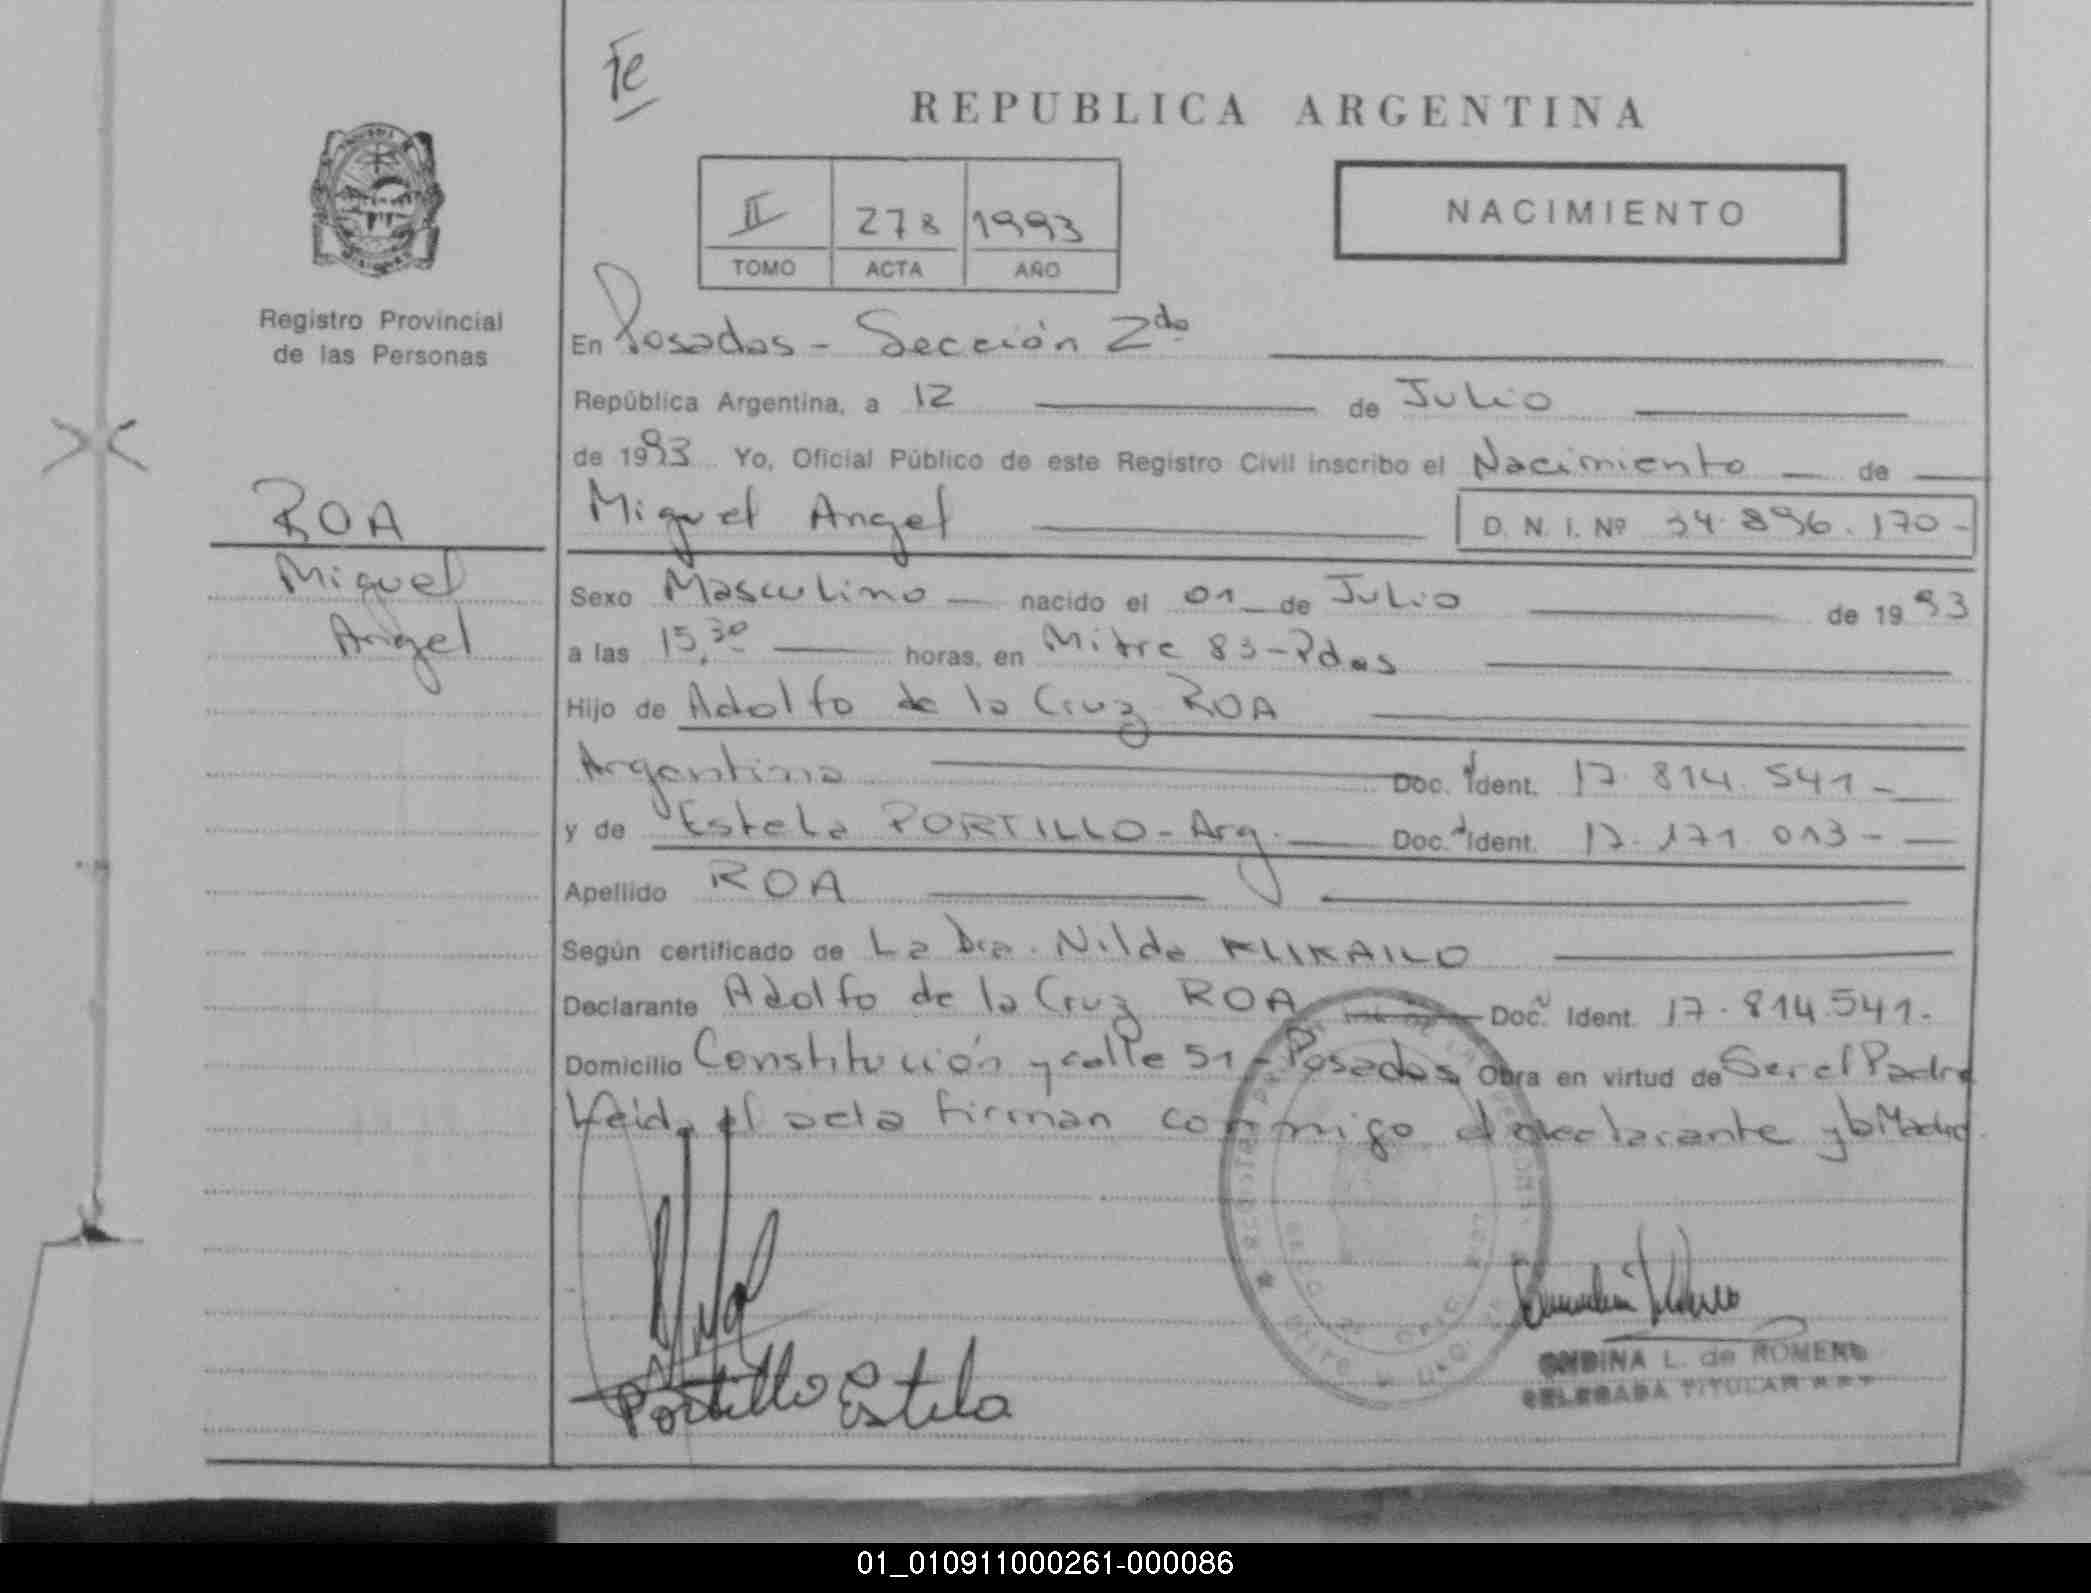 Te
REPUBLICA ARGENTINA
II 278 1993
TOMO ACTA AÑO
NACIMIENTO
Registro Provincial
de las Personas
ROA
Miguel
Angel
En Posadas - Sección 2da
República Argentina, a 12 de Julio
de 1993 Yo, Oficial Público de este Registro Civil inscribo el Nacimiento de
Miguel Angel D. N. I. Nº 34.896.170-
Sexo Masculino nacido el 01 de Julio de 1993
a las 15,30 horas, en Mitre 83-Pdas
Hijo de Adolfo de la Cruz ROA
Argentina Doc. Ident. 17.814.541-
y de Estela PORTILLO-Arg. Doc. Ident. 17.171.013-
Apellido ROA
Según certificado de La Dra. Nilda KLIKAILO
Declarante Adolfo de la Cruz ROA Doc. Ident. 17.814.541.
Domicilio Constitución y calle 51-Posadas Obra en virtud de Ser el Padre
Leida el acta firman conmigo el declarante y la Madre.
Portillo Estela
ONDINA L. de ROMERO
DELEGADA TITULAR
01_010911000261-000086